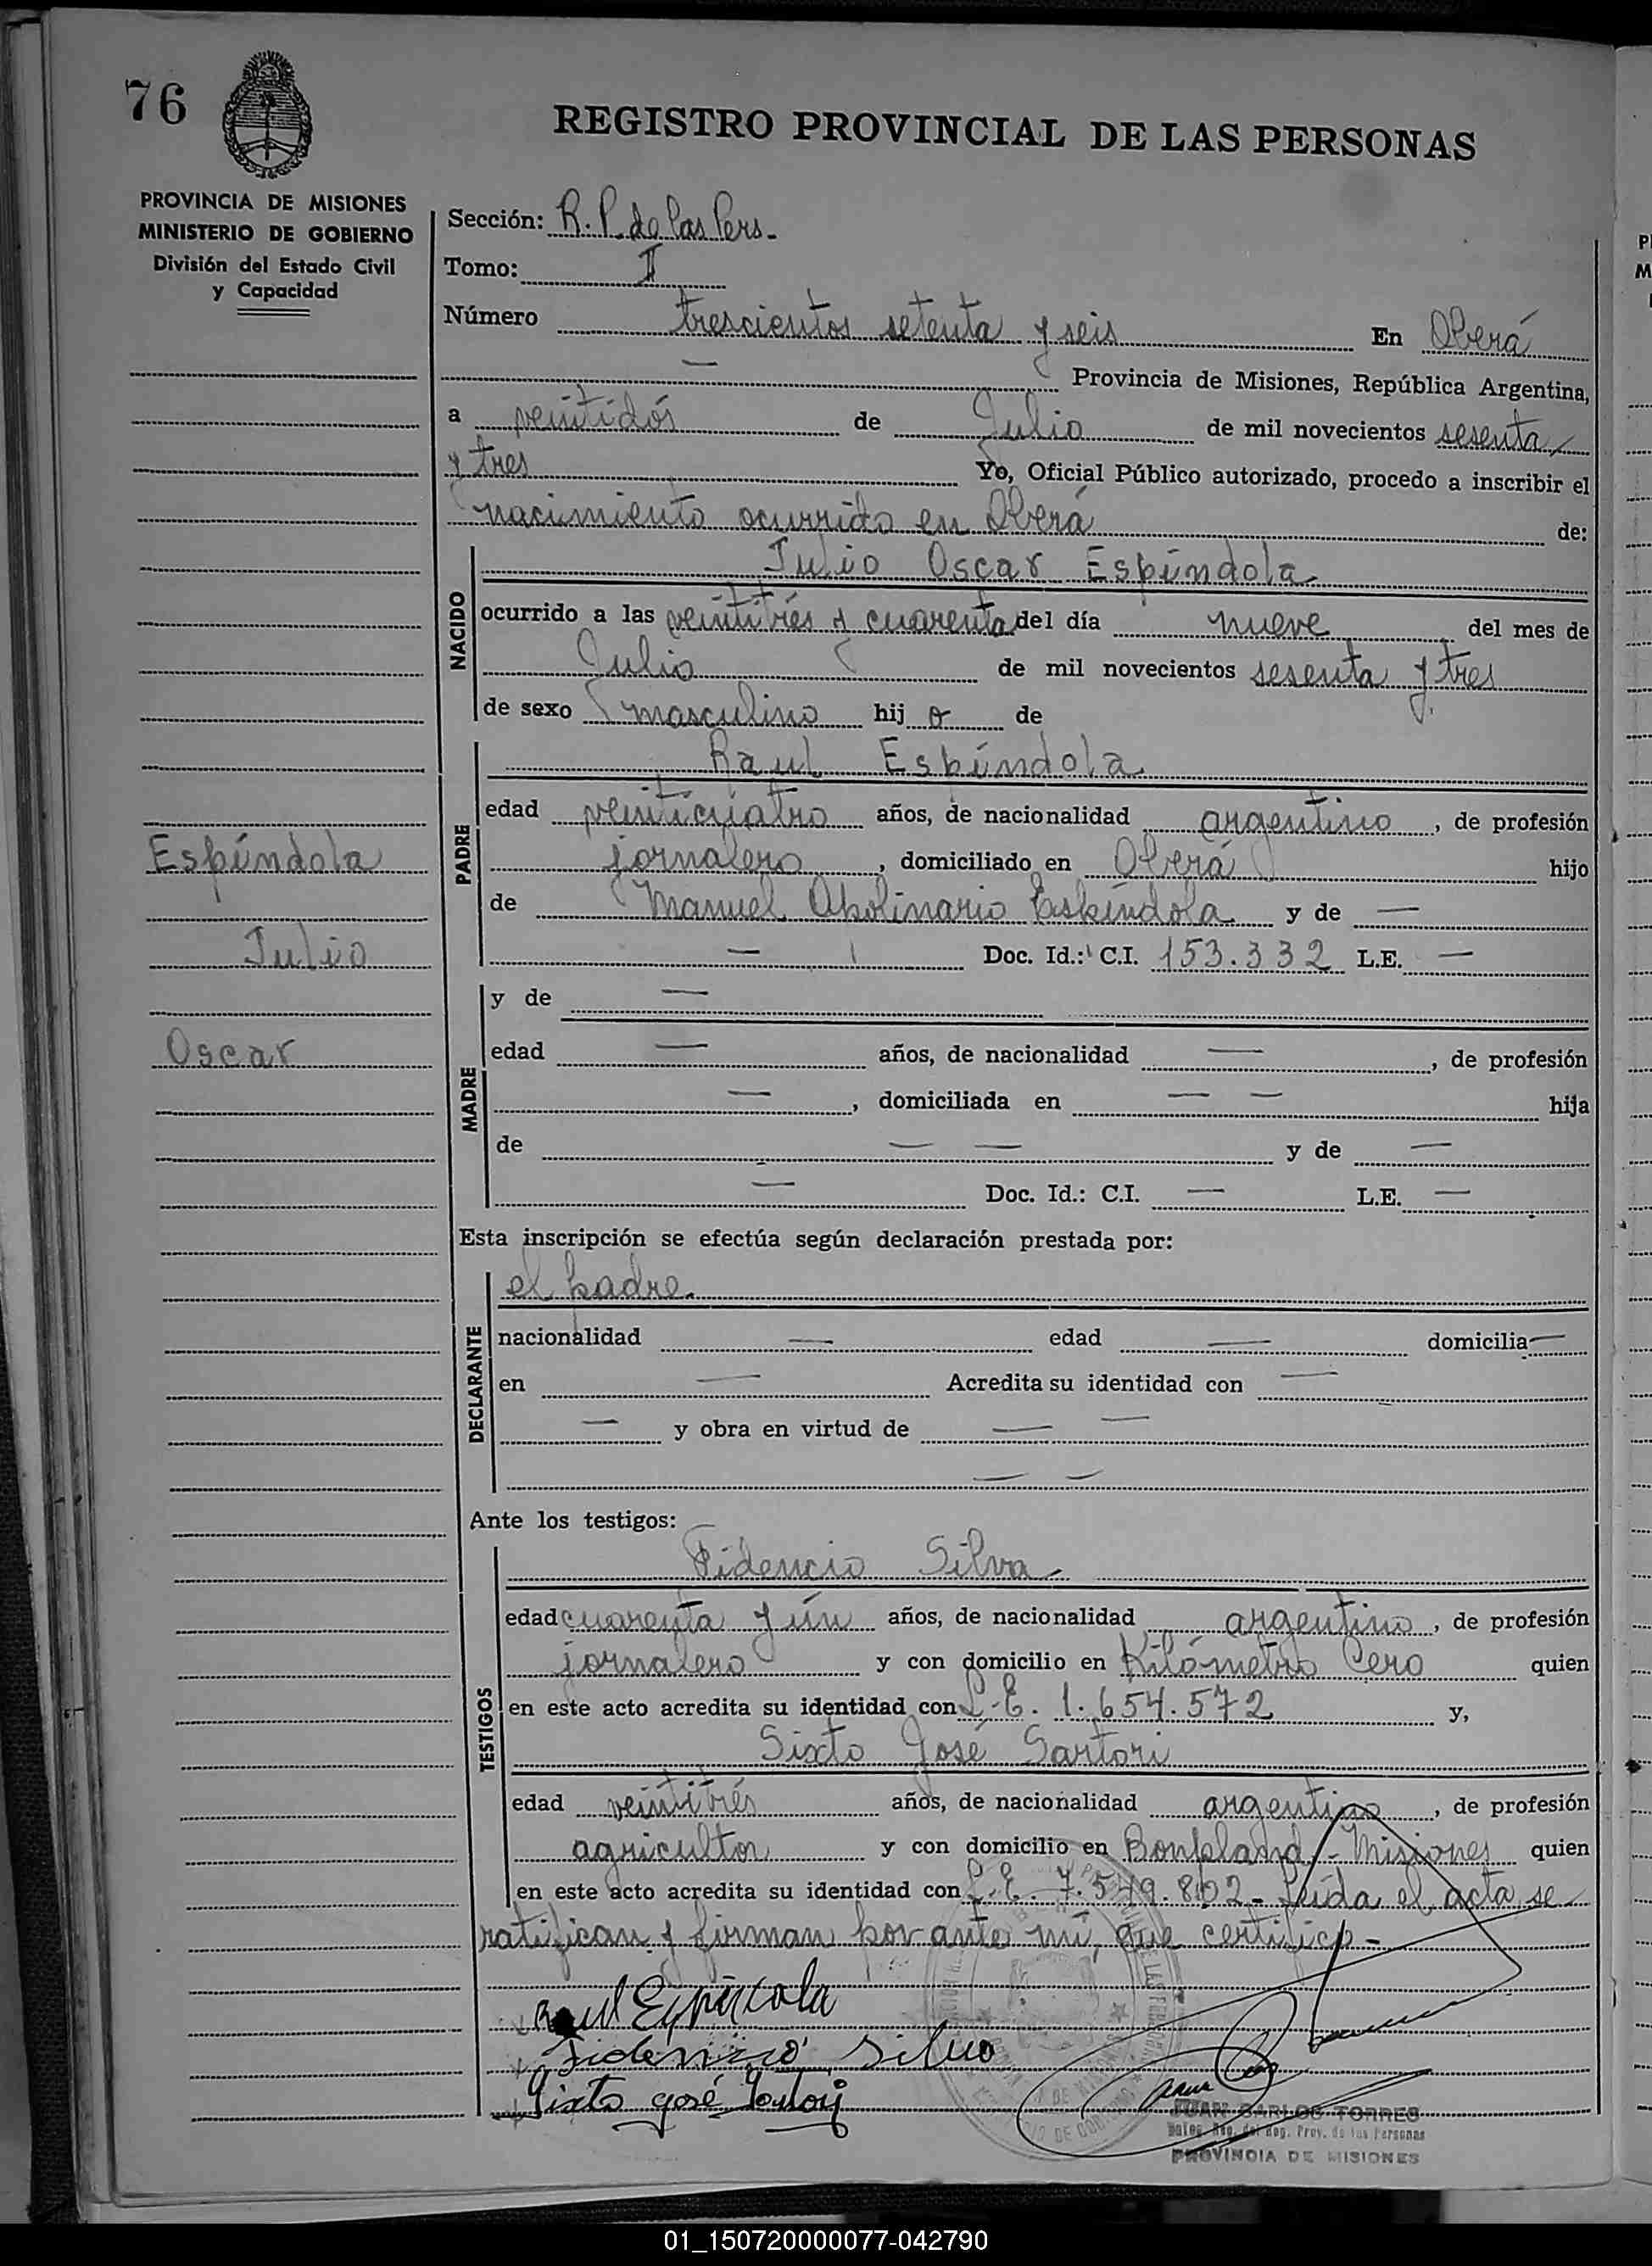 76
REGISTRO PROVINCIAL DE LAS PERSONAS
PROVINCIA DE MISIONES
MINISTERIO DE GOBIERNO
División del Estado Civil
y Capacidad
Sección: R. P. de las Pers.
Tomo: I
Número trescientos setenta y seis En Oberá
— Provincia de Misiones, República Argentina,
a veintidós de Julio de mil novecientos sesenta
y tres Yo, Oficial Público autorizado, procedo a inscribir el
nacimiento ocurrido en Oberá de:
NACIDO
Julio Oscar Espíndola
ocurrido a las veintitrés y cuarenta del día nueve del mes de
Julio de mil novecientos sesenta y tres
de sexo masculino hij o de
PADRE
Raul Espíndola
edad veinticuatro años, de nacionalidad argentino, de profesión
jornalero, domiciliado en Oberá hijo
de Manuel Apolinario Espíndola y de —
— Doc. Id.: C.I. 153.332 L.E. —
Espíndola
Julio
Oscar
MADRE
y de —
edad — años, de nacionalidad —, de profesión
—, domiciliada en — — hija
de — — y de —
— Doc. Id.: C.I. — L.E. —
Esta inscripción se efectúa según declaración prestada por:
DECLARANTE
el padre.
nacionalidad — edad — domicilia —
en — Acredita su identidad con —
— y obra en virtud de — —
— —
Ante los testigos:
TESTIGOS
Fidencio Silva
edad cuarenta y ún años, de nacionalidad argentino, de profesión
jornalero y con domicilio en Kilómetro Cero quien
en este acto acredita su identidad con L.E. 1.654.572 y,
Sixto José Sartori
edad veintitrés años, de nacionalidad argentino, de profesión
agricultor y con domicilio en Bonpland - Misiones quien
en este acto acredita su identidad con L.E. 7.549.802 - Leída el acta se
ratifican y firman por ante mí, que certifico -
Raul Espíndola
Fidencio Silva
Sixto José Sartori
JUAN CARLOS TORRES
Reg. Prov. de las Personas
PROVINCIA DE MISIONES
01_150720000077-042790